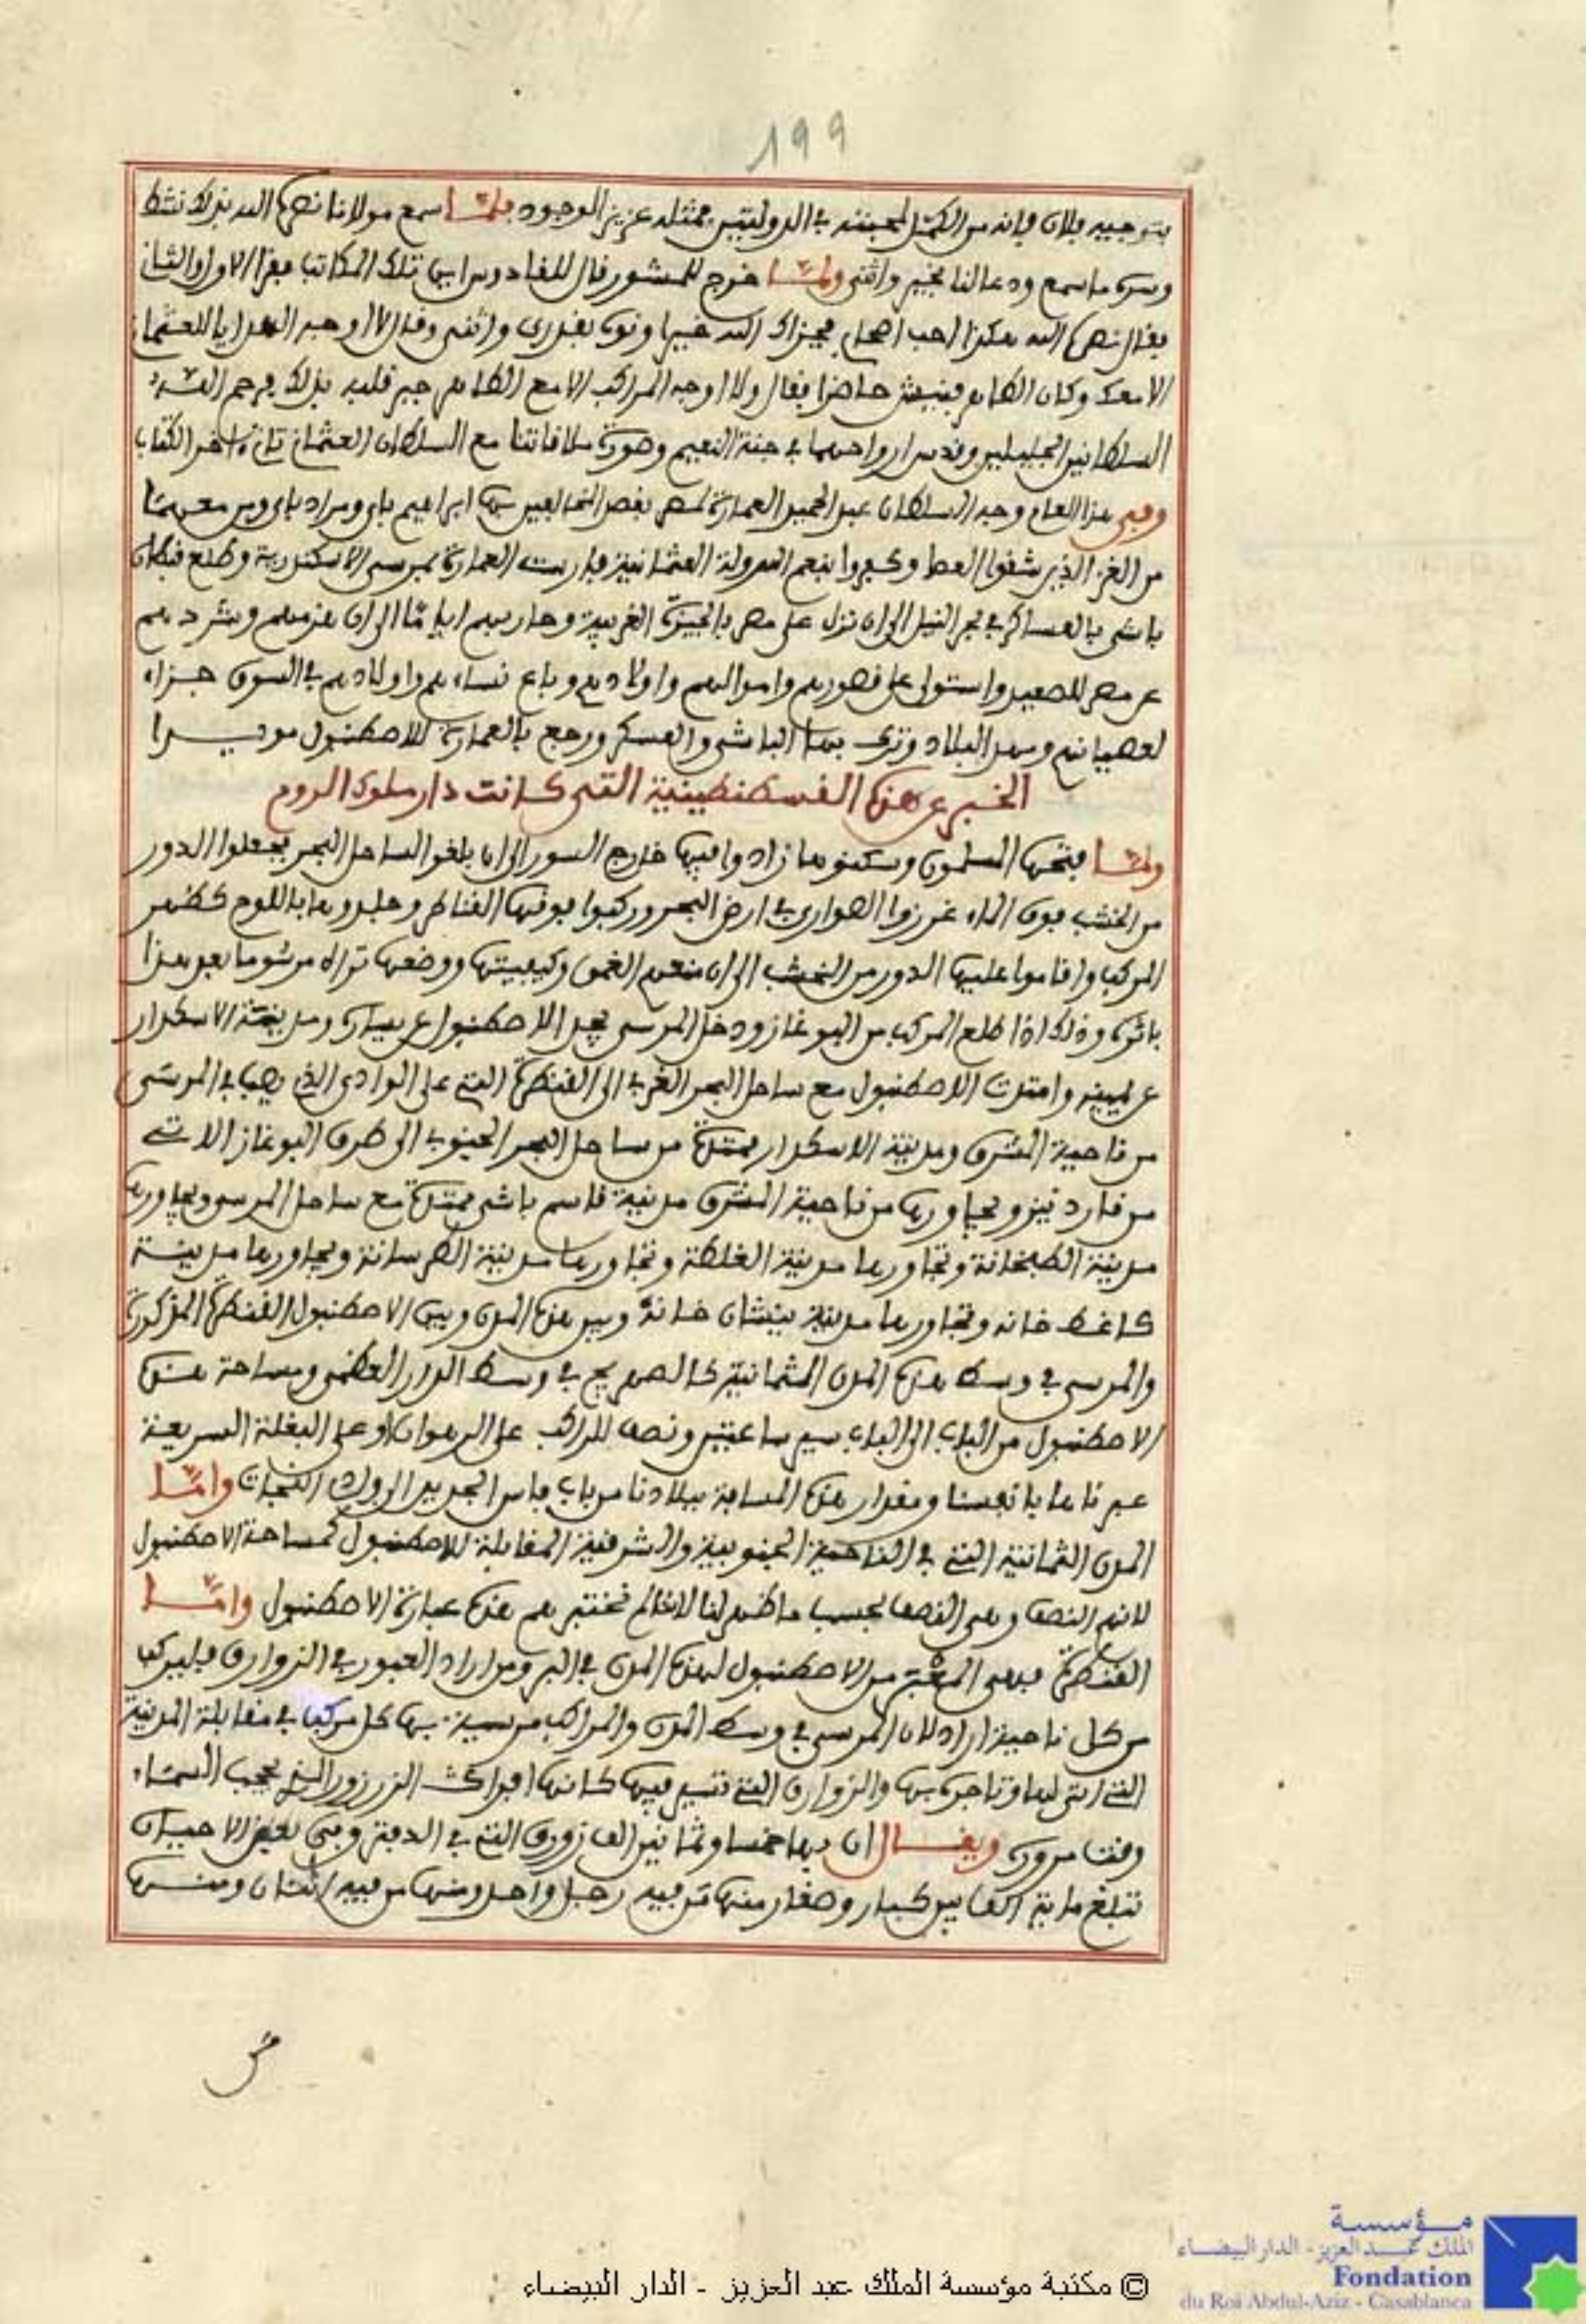 199
بتوجيه فلان فإنه من الكمل لمحبته في الدولتين فمثله عزيز الوجود فلما سمع مولانا نصره الله بذلك نشط
وسره ما سمع ودعا لنا بخير واثنى ولما خرج للمشور قال للقادوس اين تلك المكاتب فقرا الاول والثاني
فقال نصره الله هكذا احب اصحابي فجزاك الله خيرا ونوه بقدري واثنى وقال لا اوجه الهدايا للعثماني
الا معك وكان الطاهر فنيش حاضرا فقال ولا اوجه المراكب الا مع الطاهر جبر قلبه بذلك فرحم الله
السلطانين الجليلين وقدس ارواحهما في جنة النعيم وصورة ملاقاتنا مع السلطان العثماني تاتي اخر الكتاب
وفي هذا العام وجه السلطان عبد الحميد العمارة لمصر بقصد المخالفين بها ابراهيم باي ومراد باي ومن معهما
من الغز الذين شقوا العصا وكفروا بنعم الدولة العثمانية فارست العمارة بمرسى الاسكندرية وطلع قبطان
باشى بالعساكر في بحر النيل الى ان نزل على مصر بالجيزة الغربية وحاربهم اياما الى ان هزمهم وشردهم
عن مصر للصعيد واستولى على قصورهم واموالهم واولادهم وباع نساءهم واولادهم في السوق جزاء
لعصيانهم ومهد البلاد وترك بها الباشى والعسكر ورجع بالعمارة للاصطنبول مويدا
الخبر عن هذه القسطنطينية التي كانت دار ملوك الروم
ولما فتحها المسلمون وسكنوها زادوا فيها خارج السور الى ان بلغوا لساحل البحر فجعلوا الدور
من الخشب فوق الماء غرزوا الصواري في ارض البحر وركبوا فوقها القناطر وجلدوها باللوح كظهر
المركب واقاموا عليها الدور من الخشب الى ان منعهم الغمق وكيفيتها ووضعها تراه مرسوما بعد هذا
باثره وذلك اذا طلع المركب من البوغاز ودخل المرسى يجد الاصطنبول عن يساره ومدينة الاسكدار
عن يمينه وامتدت الاصطنبول مع ساحل البحر الغربي الى القنطرة التي على الوادي الذي يصب في المرسى
من ناحية المشرق ومدينة الاسكدار ممتدة من ساحل البحر الجنوبي الى طرف البوغاز الاتي
من قاردنيز ويجاورها من ناحية المشرق مدينة قاسم باشى ممتدة مع ساحل المرسى ويجاورها
مدينة الطبخانة وتجاورها مدينة الغلطة وتجاورها مدينة الطرسانة ويجاورها مدينة
كاغط خانه وتجاورها مدينة بنشان خانة وبين هذه المدن وبين الاصطنبول القنطرة المذكورة
والمرسى في وسط هذه المدن الثمانية كالصهريج في وسط الدار العظمى ومساحة هذه
الاصطنبول من الباب الى الباب سير ساعتين ونصف للراكب على الرهوان او على البغلة السريعة
عبرناها بانفسنا ومقدار هذه المسافة ببلادنا من باب فاس الجديد الى واد النجات واما
المدن الثمانية التي في الناحية الجنوبية والشرقية المقابلة للاصطنبول كمساحة الاصطنبول
لانهم النصف وهي النصف بحسب ما ظهر لنا لانا لم نختبرهم هذه عبارة الاصطنبول واما
القنطرة فهي المعبر من الاصطنبول لهذه المدن في البر ومن اراد العبور في الزوارق فليركب
من كل ناحية اراد لان المرسى في وسط المدن والمراكب مرسية بها كل مركب في مقابلة المدينة
التي اتى لها وتاجره بها والزوارق التي تسير فيها كانها افراك الزرزور الذي يحجب السماء
وقت مروره ويقال ان بها خمسا وثمانين الف زورق التي في الدفتر وفي بعض الاحيان
تبلغ ماية الف بين كبار وصغار منها من فيه رجل واحد ومنها من فيه اثنان ومنها
من
© مكتبة مؤسسة الملك عبد العزيز - الدار البيضاء
مؤسسة
الملك عبد العزيز - الدار البيضاء
Fondation
du Roi Abdul-Aziz - Casablanca